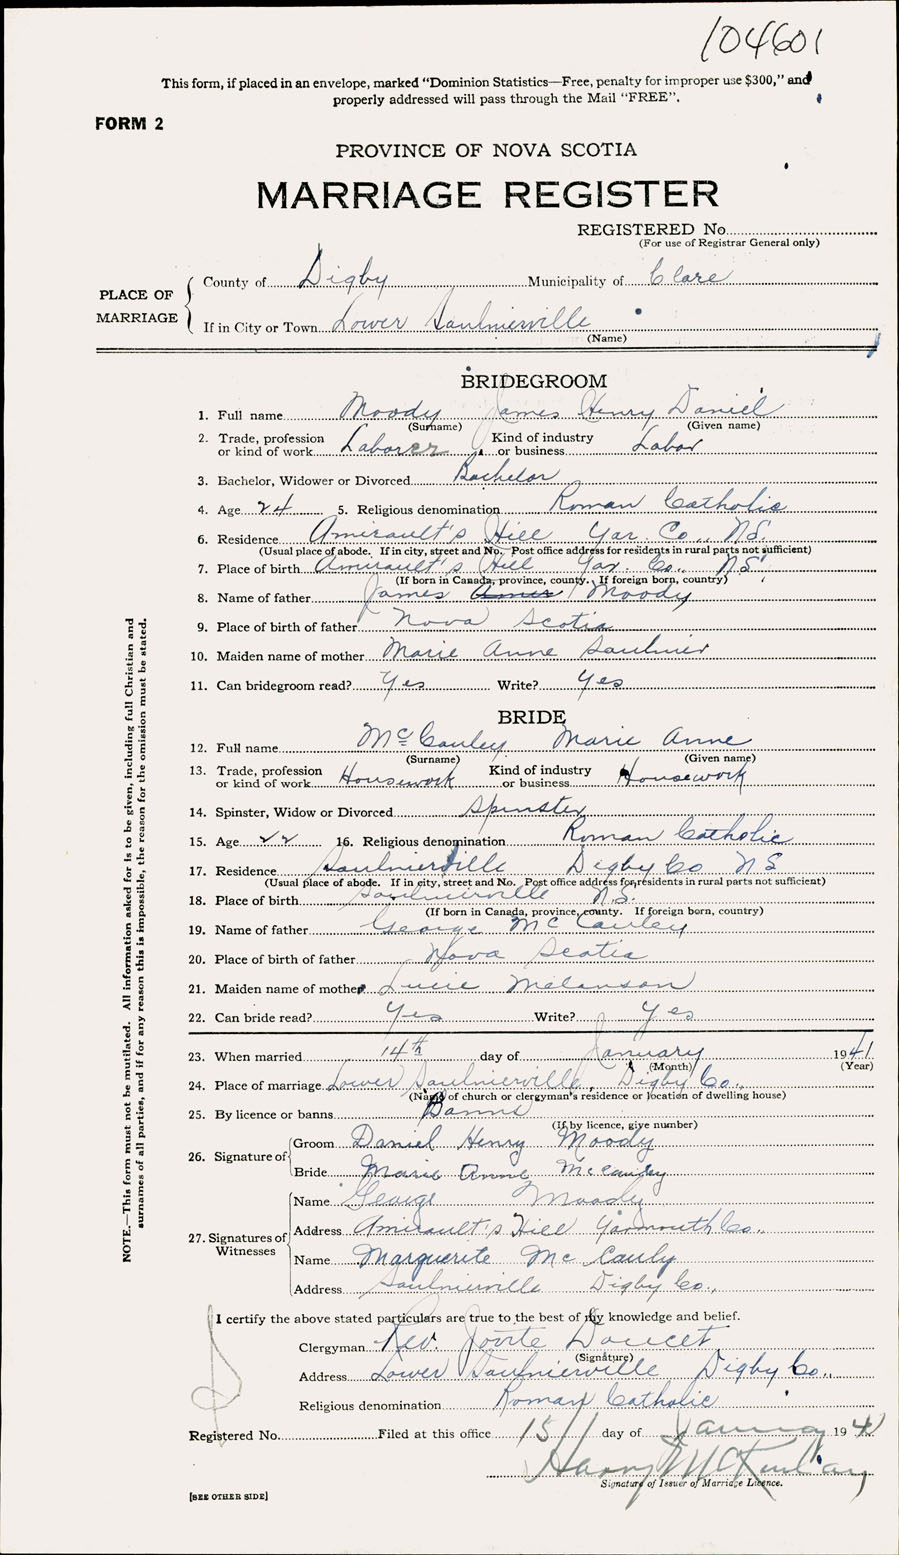 104601
This form, if placed in an envelope, marked “Dominion Statistics—Free, penalty for improper use $300,” and
properly addressed will pass through the Mail “FREE”.
FORM 2
PROVINCE OF NOVA SCOTIA
MARRIAGE REGISTER
REGISTERED No.
(For use of Registrar General only)
PLACE OF MARRIAGE
County of Digby Municipality of Clare
If in City or Town Lower Saulnierville
(Name)
BRIDEGROOM
1. Full name Moody James Henry Daniel
(Surname) (Given name)
2. Trade, profession or kind of work Laborer Kind of industry or business Labor
3. Bachelor, Widower or Divorced Bachelor
4. Age 24 5. Religious denomination Roman Catholic
6. Residence Amirault's Hill Yar. Co., N.S.
(Usual place of abode. If in city, street and No. Post office address for residents in rural parts not sufficient)
7. Place of birth Amirault's Hill Yar. Co., N.S.
(If born in Canada, province, county. If foreign born, country)
8. Name of father James Moody
9. Place of birth of father Nova Scotia
10. Maiden name of mother Marie Anne Saulnier
11. Can bridegroom read? Yes Write? Yes
BRIDE
12. Full name McCauley Marie Anne
(Surname) (Given name)
13. Trade, profession or kind of work Housework Kind of industry or business Housework
14. Spinster, Widow or Divorced Spinster
15. Age 22 16. Religious denomination Roman Catholic
17. Residence Saulnierville Digby Co N S
(Usual place of abode. If in city, street and No. Post office address for residents in rural parts not sufficient)
18. Place of birth Saulnierville N.S.
(If born in Canada, province, county. If foreign born, country)
19. Name of father George McCauley
20. Place of birth of father Nova Scotia
21. Maiden name of mother Lucie Melanson
22. Can bride read? Yes Write? Yes
23. When married 14th day of January 1941
(Month) (Year)
24. Place of marriage Lower Saulnierville, Digby Co.,
(Name of church or clergyman's residence or location of dwelling house)
25. By licence or banns Banns
(If by licence, give number)
26. Signature of Groom Daniel Henry Moody
Bride Marie Anne McCauley
27. Signatures of Witnesses Name George Moody
Address Amirault's Hill Yarmouth Co.,
Name Marguerite McCauly
Address Saulnierville Digby Co.,
I certify the above stated particulars are true to the best of my knowledge and belief.
Clergyman Rev. Doucet
(Signature)
Address Lower Saulnierville Digby Co.,
Religious denomination Roman Catholic
Registered No. Filed at this office 15 day of January 1941
Harry
Signature of Issuer of Marriage Licence.
[SEE OTHER SIDE]
NOTE.—This form must not be mutilated. All information asked for is to be given, including full Christian and
surnames of all parties, and if for any reason this is impossible, the reason for the omission must be stated.